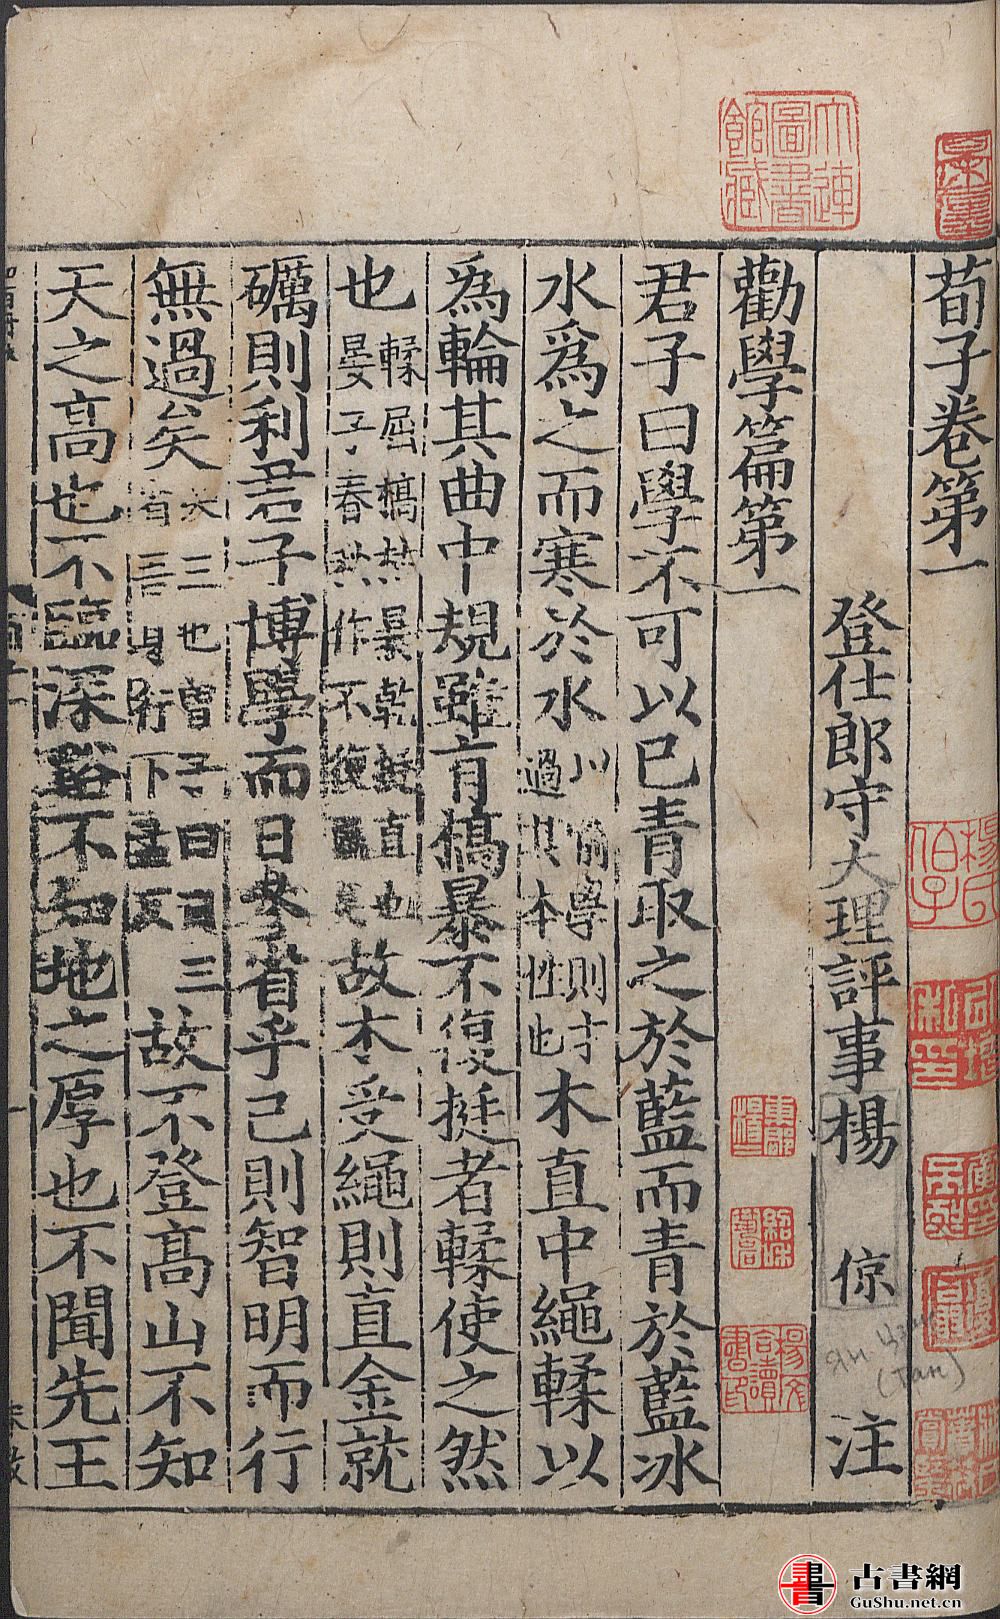 荀子卷第一
登仕郎守大理評事楊 倞 注
勸學篇第一
君子曰學不可以已青取之於藍而青於藍冰
水爲之而寒於水以喻學則才過其本性也木直中繩輮以
爲輪其曲中規雖有槁暴不復挺者輮使之然
也輮屈槁枯暴乾挺直也晏子春秋作不復贏矣故木受繩則直金就
礪則利君子博學而日參省乎己則智明而行
無過矣參三也曾子曰日三省吾身行下孟反故不登高山不知
天之高也不臨深谿不知地之厚也不聞先王
大連圖書館藏
古書網
GuShu.net.cn